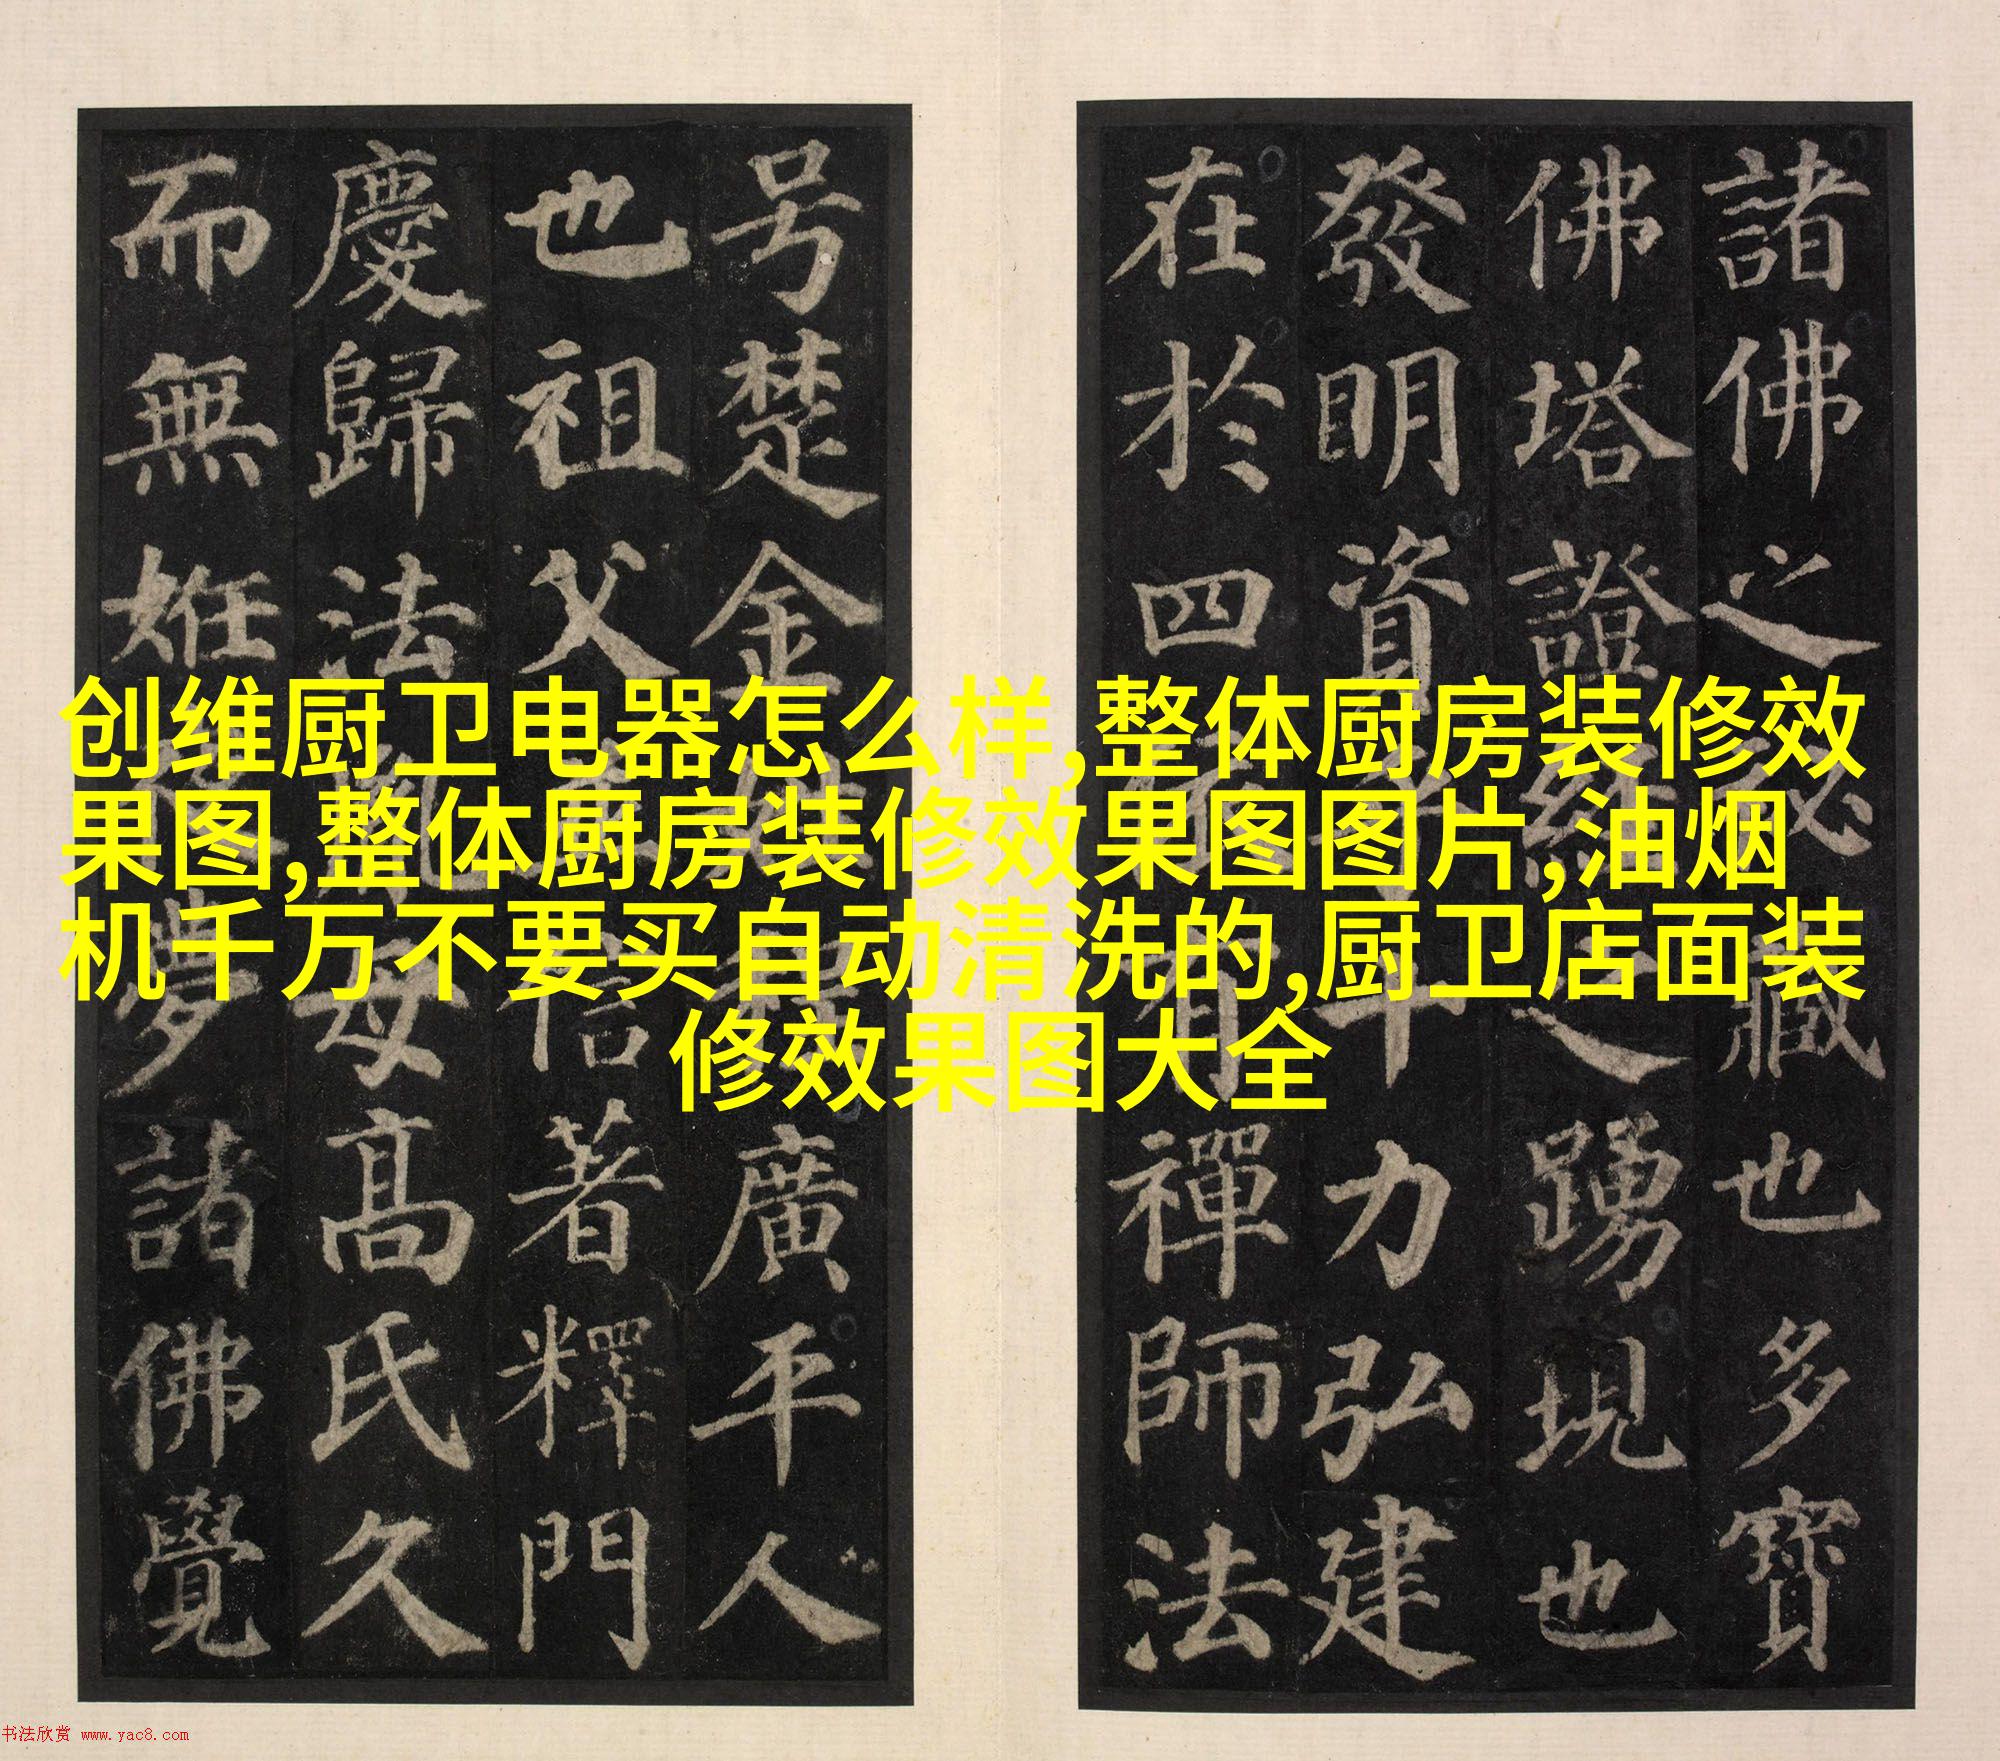 创维厨卫电器怎么样,整体厨房装修效
果图,整体厨房装修效果图图片,油烟
机千万不要买自动清洗的,厨卫店面装
修效果图大全
諸佛之秘藏也多寶
佛塔證經之踴現也
發明資十力弘建
在於四有禪師法
号楚金廣平人
也祖父信著釋門
慶歸法母高氏久
而無姙夢諸佛覺
书法欣赏 www.yac8.com